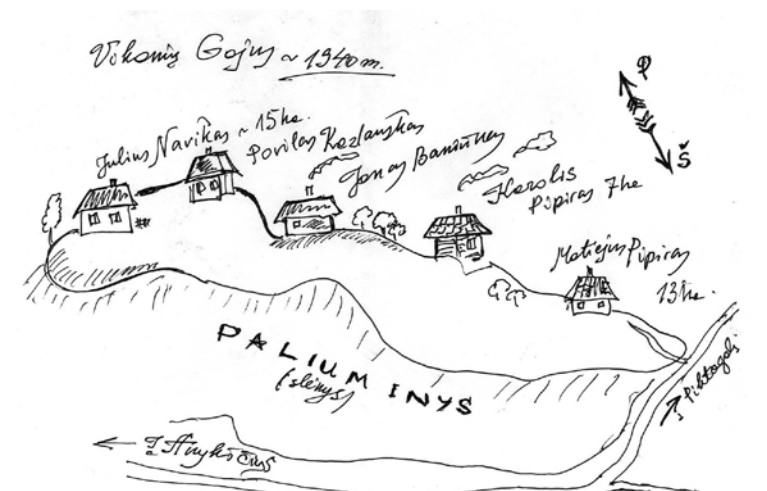 Vikonių Gojus ~ 1940 m.
P
Š
Julius Navikas ~ 15 ha.
Povilas Kazlauskas
Jonas Baniūnas
Karolis
Pipiras 7 ha
Motiejus Pipiras
13 ha.
PALIUMINYS
(slėnys)
Į Anykščius
Į Piktagalį